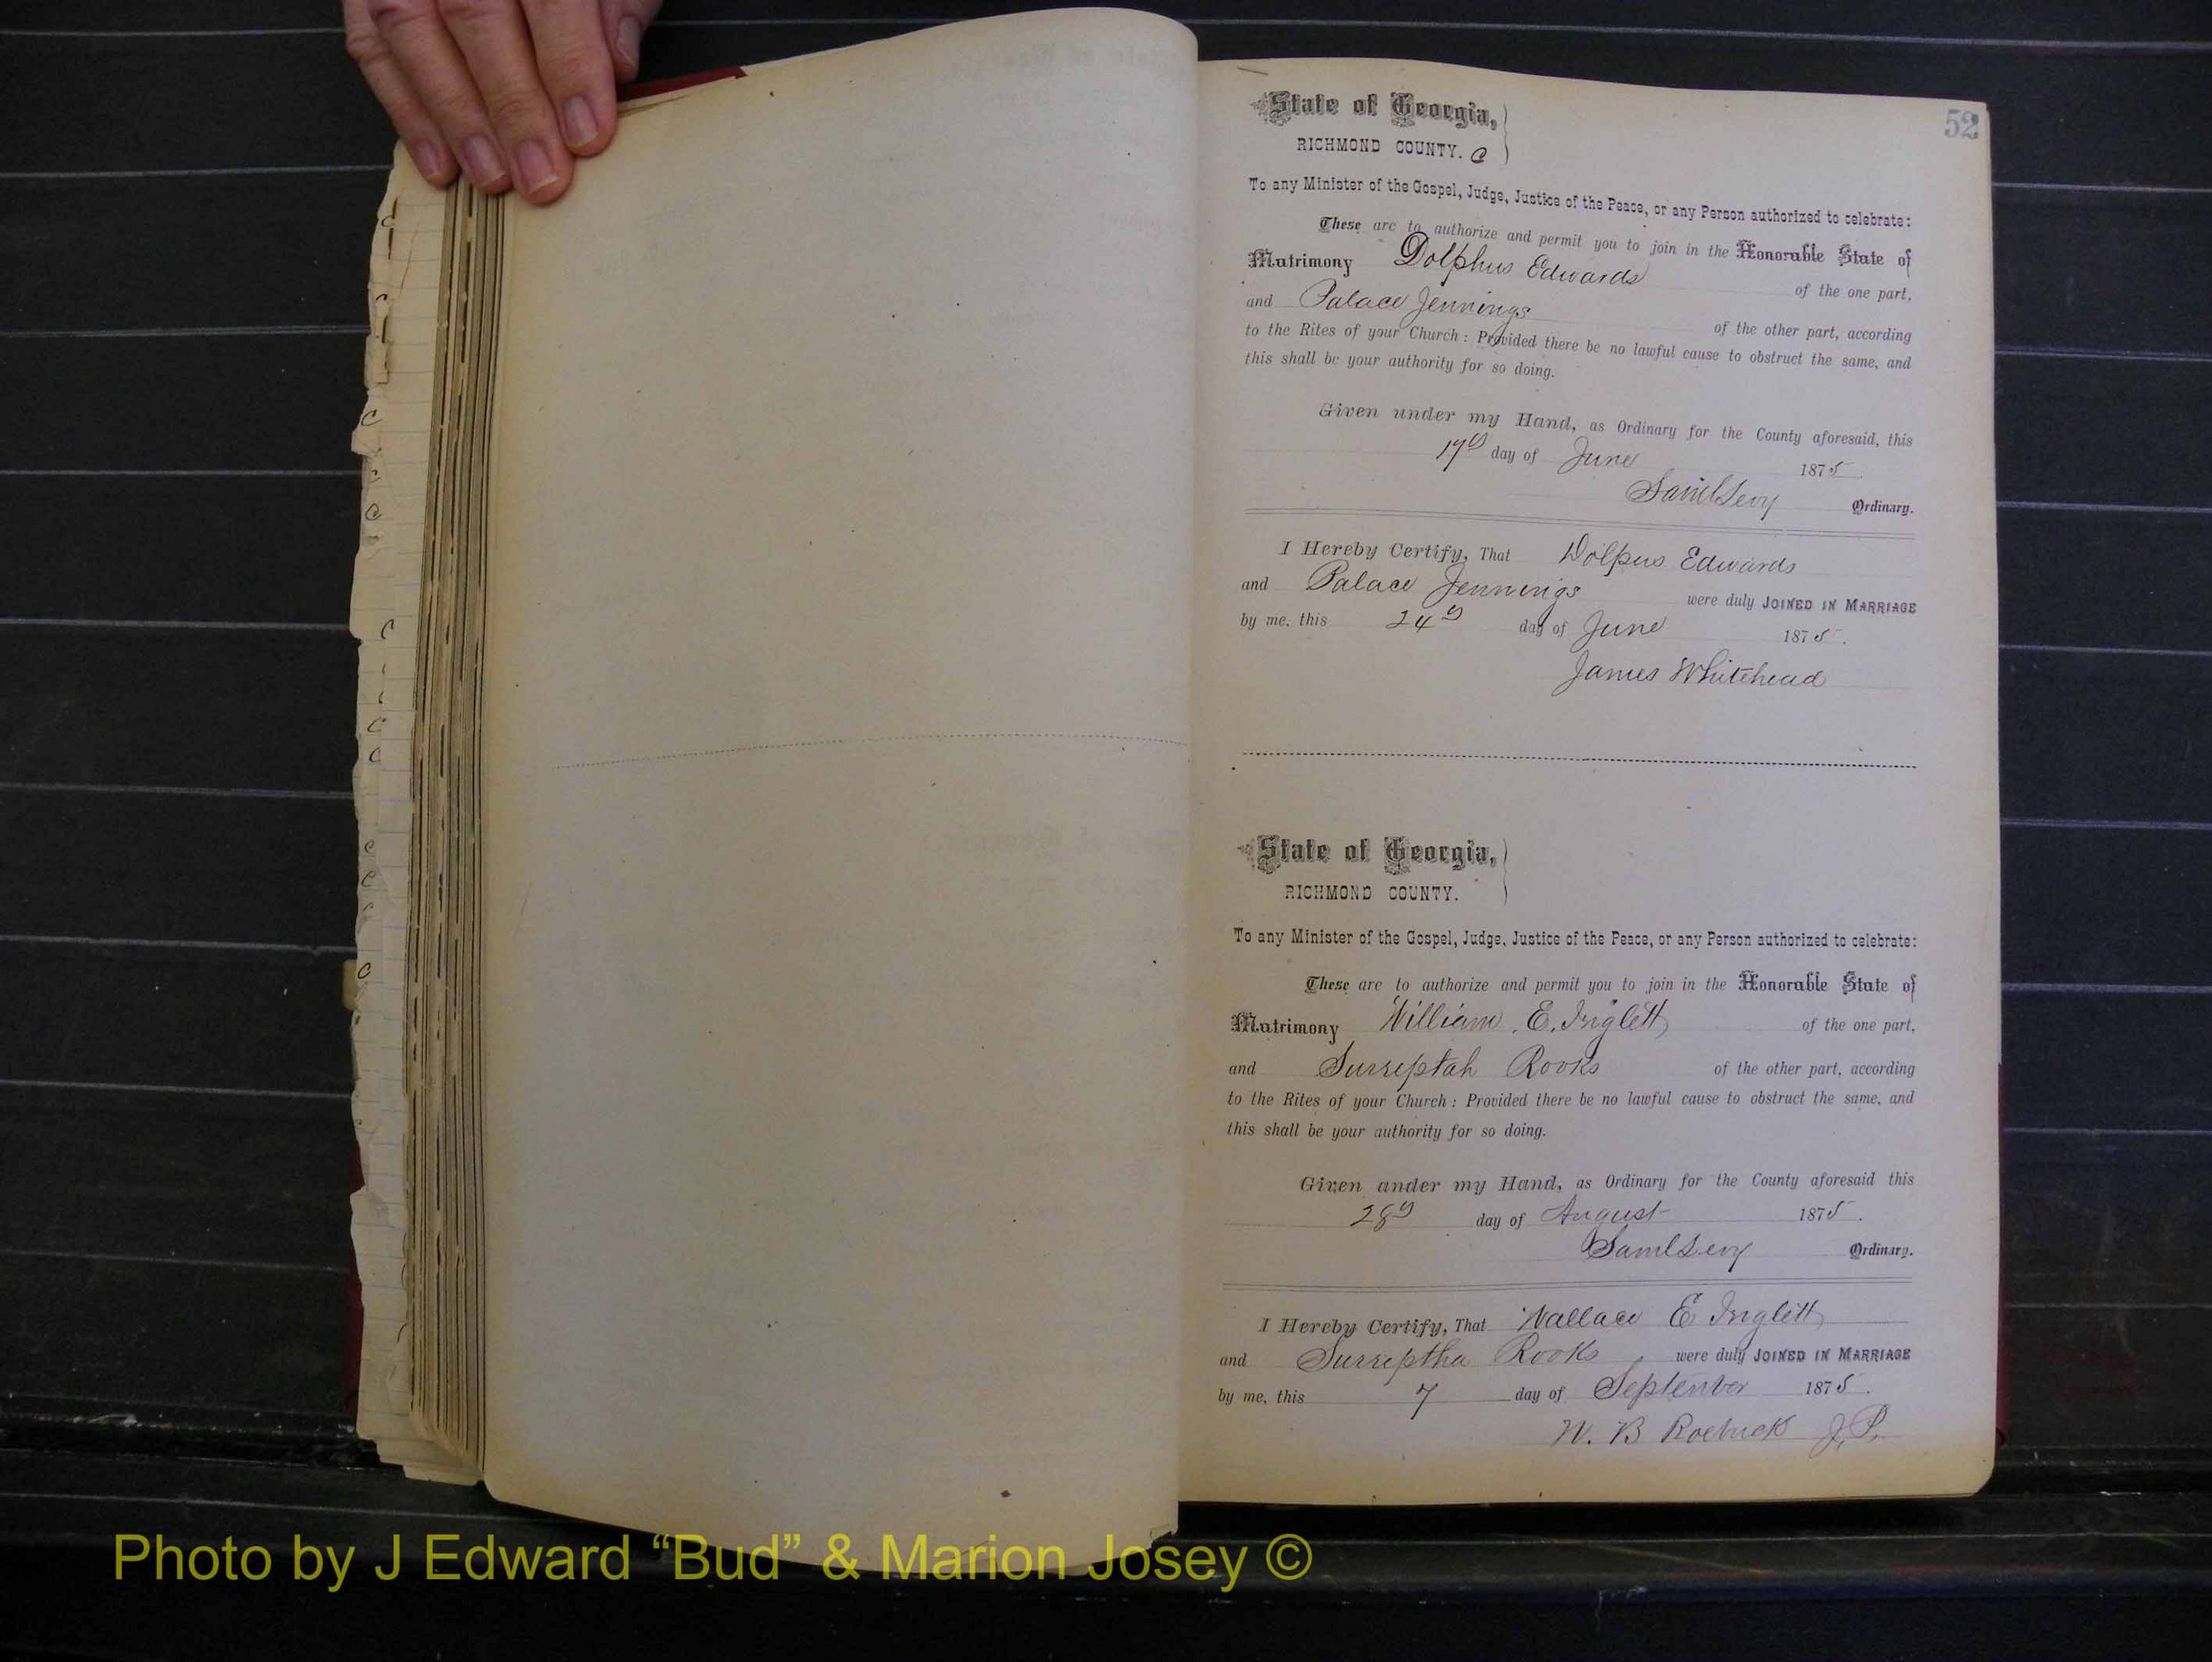 52
State of Georgia,
RICHMOND COUNTY. C
To any Minister of the Gospel, Judge, Justice of the Peace, or any Person authorized to celebrate:
These are to authorize and permit you to join in the Honorable State of
Matrimony Dolphus Edwards of the one part,
and Palace Jennings of the other part, according
to the Rites of your Church: Provided there be no lawful cause to obstruct the same, and
this shall be your authority for so doing.
Given under my Hand, as Ordinary for the County aforesaid, this
17th day of June 1875.
Saml Levy Ordinary.
I Hereby Certify, That Dolpus Edwards
and Palace Jennings were duly JOINED IN MARRIAGE
by me, this 24th day of June 1875.
James Whitehead
State of Georgia,
RICHMOND COUNTY.
To any Minister of the Gospel, Judge, Justice of the Peace, or any Person authorized to celebrate:
These are to authorize and permit you to join in the Honorable State of
Matrimony William. E. Inglett of the one part,
and Surreptah Rooks of the other part, according
to the Rites of your Church: Provided there be no lawful cause to obstruct the same, and
this shall be your authority for so doing.
Given under my Hand, as Ordinary for the County aforesaid this
28th day of August 1875.
Saml Levy Ordinary.
I Hereby Certify, That Wallace E Inglett
and Surreptha Rooks were duly JOINED IN MARRIAGE
by me, this 7 day of September 1875.
W. B Roebuck J.P.
Photo by J Edward “Bud” & Marion Josey ©